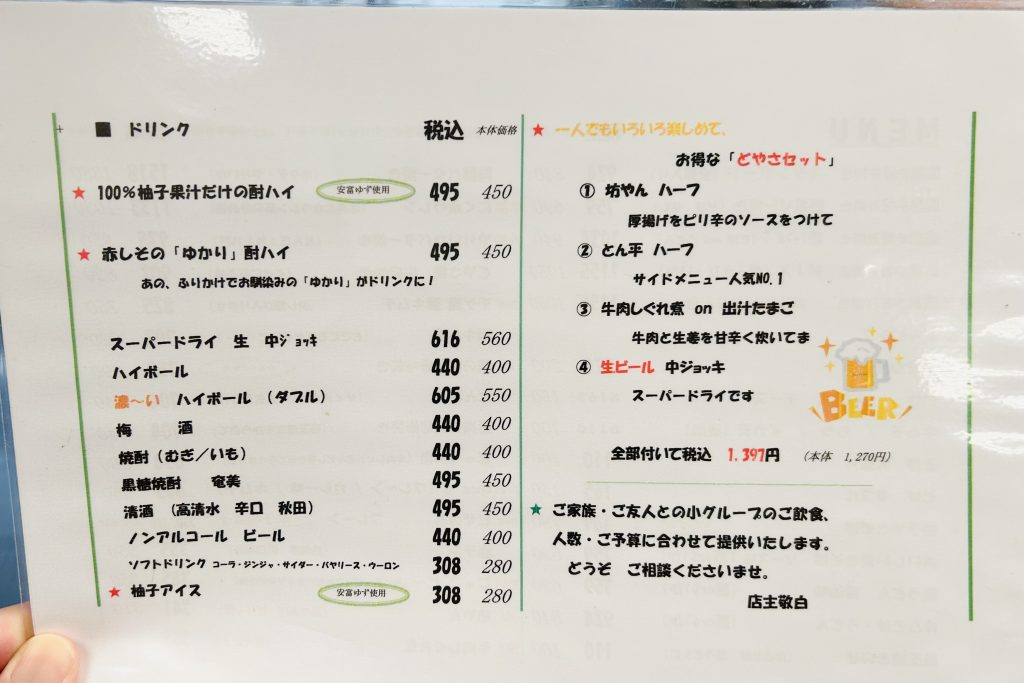 ■ ドリンク 税込 本体価格
★ 100%柚子果汁だけの酎ハイ 安富ゆず使用 495 450
★ 赤しその「ゆかり」酎ハイ 495 450
あの、ふりかけでお馴染みの「ゆかり」がドリンクに!
スーパードライ 生 中ジョッキ 616 560
ハイボール 440 400
濃〜い ハイボール (ダブル) 605 550
梅 酒 440 400
焼酎 (むぎ/いも) 440 400
黒糖焼酎 奄美 495 450
清酒 (高清水 辛口 秋田) 495 450
ノンアルコール ビール 440 400
ソフトドリンク コーラ・ジンジャ・サイダー・バヤリース・ウーロン 308 280
★ 柚子アイス 安富ゆず使用 308 280
★ 一人でもいろいろ楽しめて、
お得な「どやさセット」
① 坊やん ハーフ
厚揚げをピリ辛のソースをつけて
② とん平 ハーフ
サイドメニュー人気NO.1
③ 牛肉しぐれ煮 on 出汁たまご
牛肉と生姜を甘辛く炊いてま
④ 生ビール 中ジョッキ
スーパードライです
BEER
全部付いて税込 1,397円 (本体 1,270円)
★ ご家族・ご友人との小グループのご飲食、
人数・ご予算に合わせて提供いたします。
どうぞ ご相談くださいませ。
店主敬白